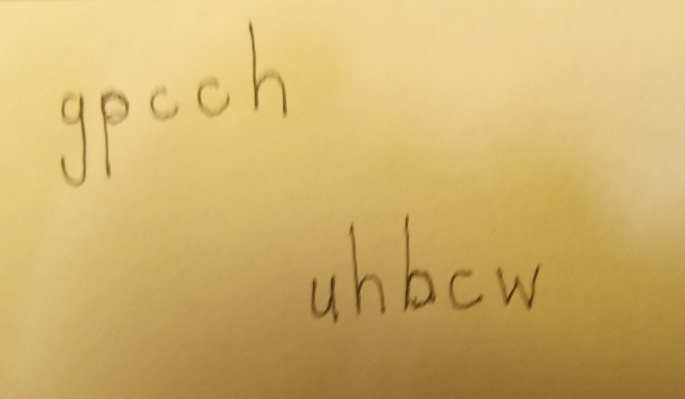 gpcch
uhbcw